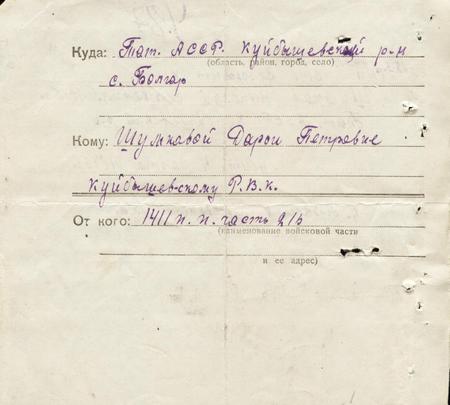 Куда: Тат. АССР. Куйбышевский р-н
(область, район, город, село)
с. Болгар
Кому: Шумковой Дарои Петровне
Куйбышевскому Р.В.К.
От кого: 1411 п.п. часть
(наименование войсковой части
и ее адрес)